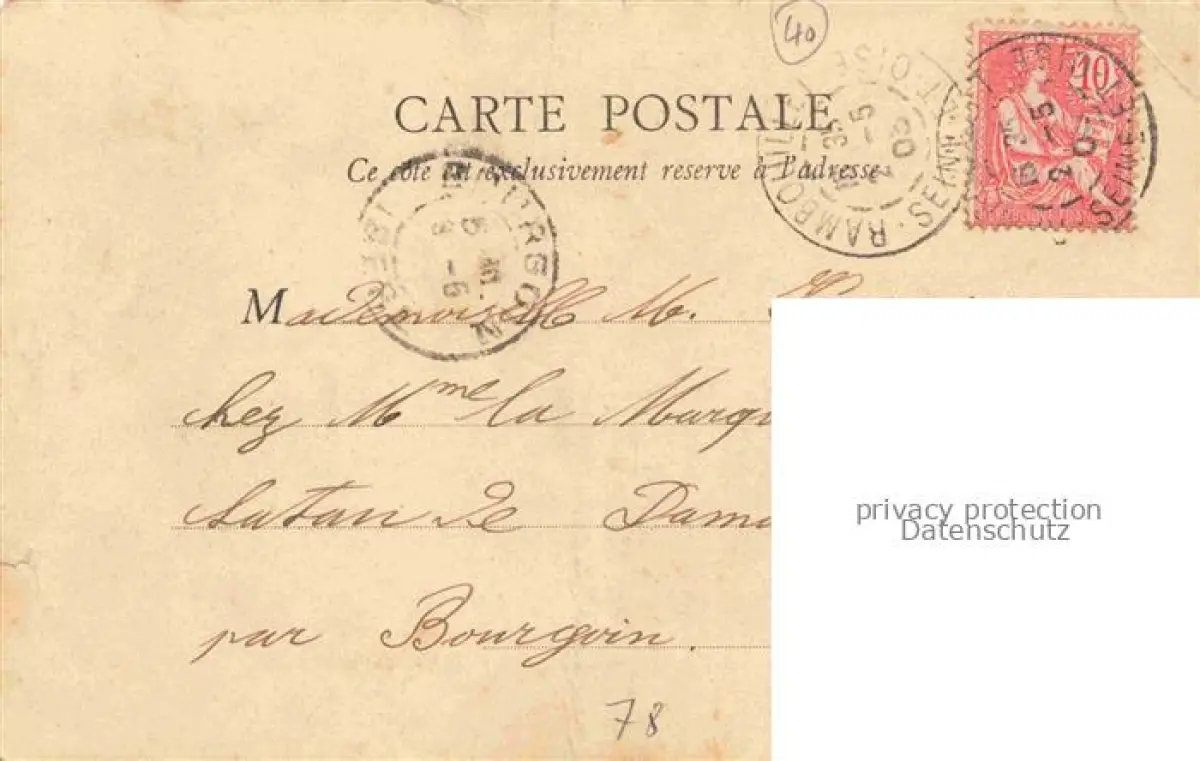 40
CARTE POSTALE
Ce côté est exclusivement reserve à l'adresse
10
RAMBOUILLET SEINE-ET-OISE
2 -5 03
SEINE
BOURGOIN ISÈRE
Mademoiselle M.
chez Mme la Marq
Satan de Dam
par Bourgoin.
78
privacy protection
Datenschutz